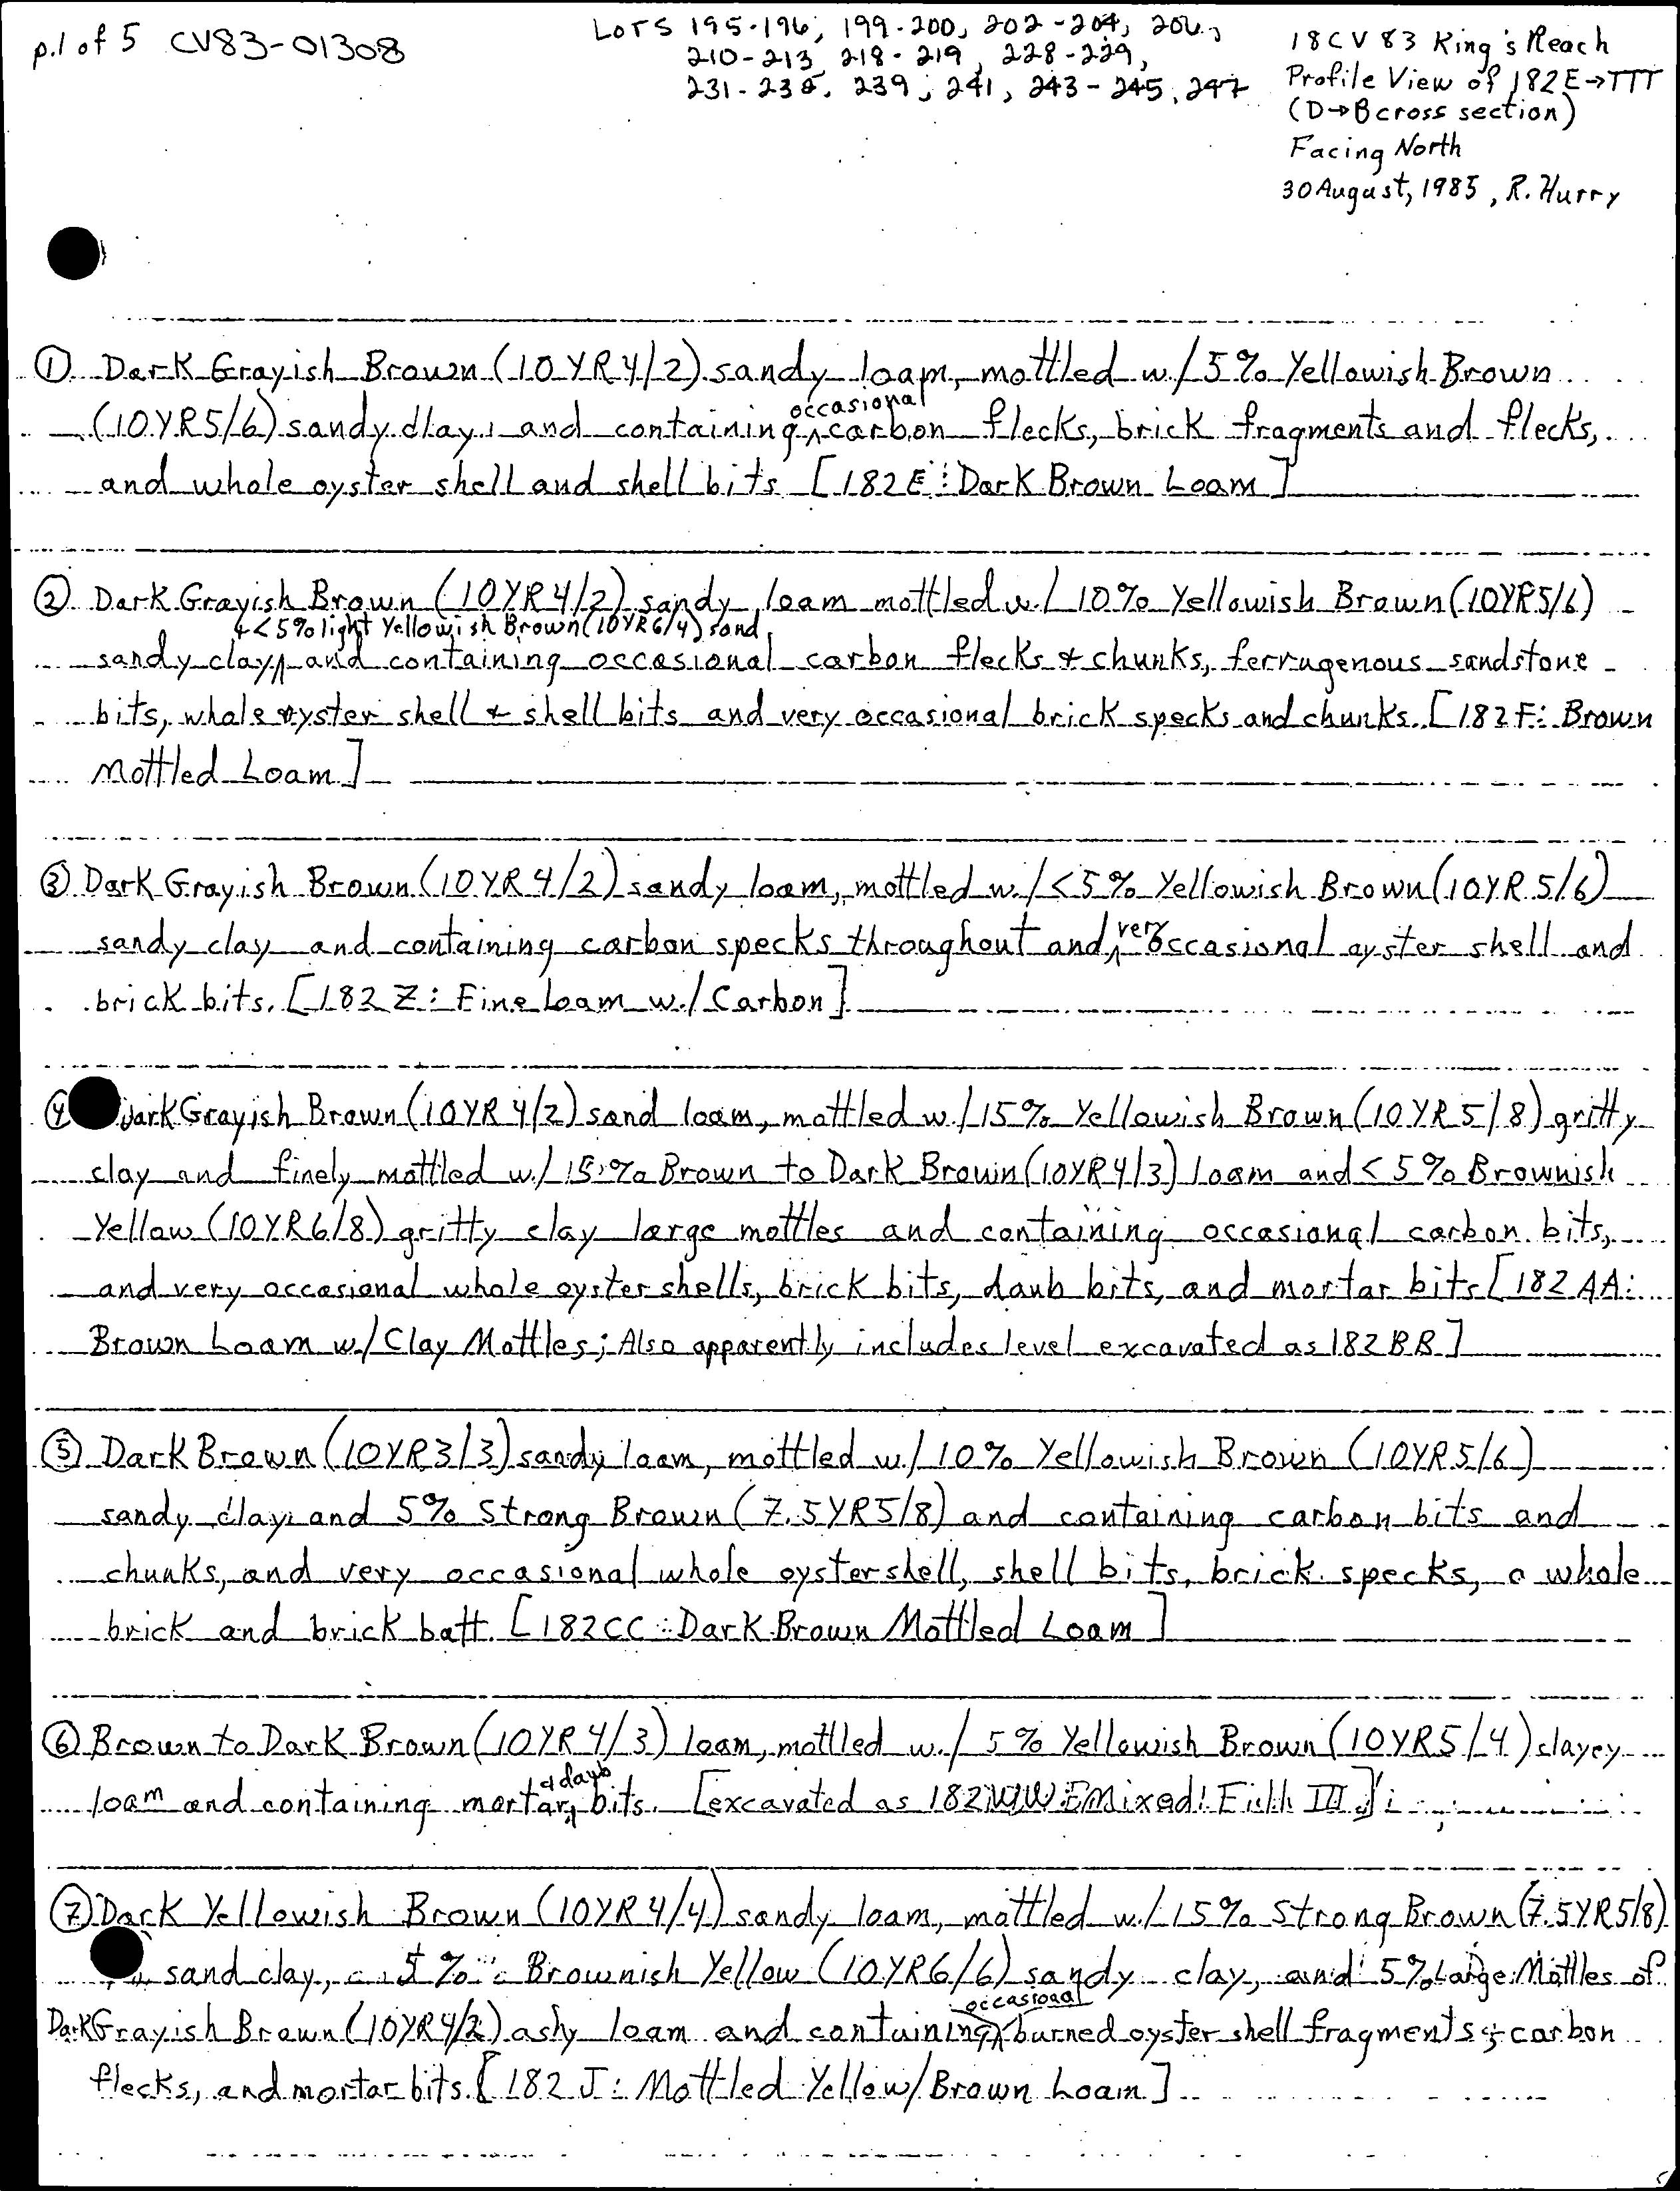 p.1 of 5 CV83-01308
Lots 195-196, 199-200, 202-204, 206,
210-213, 218-219, 228-229,
231-235, 239, 241, 243-245, 247
18CV83 King's Reach
Profile View of 182E→TTT
(D→B cross section)
Facing North
30 August, 1985, R. Hurry
① Dark Grayish Brown (10YR4/2) sandy loam, mottled w/ 5% Yellowish Brown
(10YR5/6) sandy clay, and containing occasional carbon flecks, brick fragments and flecks,
and whole oyster shell and shell bits [182E: Dark Brown Loam]
② Dark Grayish Brown (10YR4/2) sandy loam mottled w/ 10% Yellowish Brown (10YR5/6)
+ <5% light Yellowish Brown (10YR6/4) sand
sandy clay, and containing occasional carbon flecks & chunks, ferrugenous sandstone
bits, whole oyster shell & shell bits and very occasional brick specks and chunks. [182F: Brown
Mottled Loam]
③ Dark Grayish Brown (10YR4/2) sandy loam, mottled w/ <5% Yellowish Brown (10YR5/6)
sandy clay and containing carbon specks throughout and very occasional oyster shell and
brick bits. [182Z: Fine Loam w/ Carbon]
④ Dark Grayish Brown (10YR4/2) sand loam, mottled w/ 15% Yellowish Brown (10YR5/8) gritty
clay and finely mottled w/ 15% Brown to Dark Brown (10YR4/3) loam and <5% Brownish
Yellow (10YR6/8) gritty clay large mottles and containing occasional carbon bits,
and very occasional whole oyster shells, brick bits, daub bits, and mortar bits [182AA:
Brown Loam w/ Clay Mottles; Also apparently includes level excavated as 182BB]
⑤ Dark Brown (10YR3/3) sandy loam, mottled w/ 10% Yellowish Brown (10YR5/6)
sandy clay and 5% Strong Brown (7.5YR5/8) and containing carbon bits and
chunks, and very occasional whole oyster shell, shell bits, brick specks, a whole
brick and brick batt. [182CC: Dark Brown Mottled Loam]
⑥ Brown to Dark Brown (10YR4/3) loam, mottled w/ 5% Yellowish Brown (10YR5/4) clayey
loam and containing mortar & daub bits. [excavated as 182WW Mixed Fill III]
⑦ Dark Yellowish Brown (10YR4/4) sandy loam, mottled w/ 15% Strong Brown (7.5YR5/8)
sand clay, 5% Brownish Yellow (10YR6/6) sandy clay, and 5% Large Mottles of
Dark Grayish Brown (10YR4/2) ashy loam and containing occasional burned oyster shell fragments, carbon
flecks, and mortar bits. [182J: Mottled Yellow/Brown Loam]